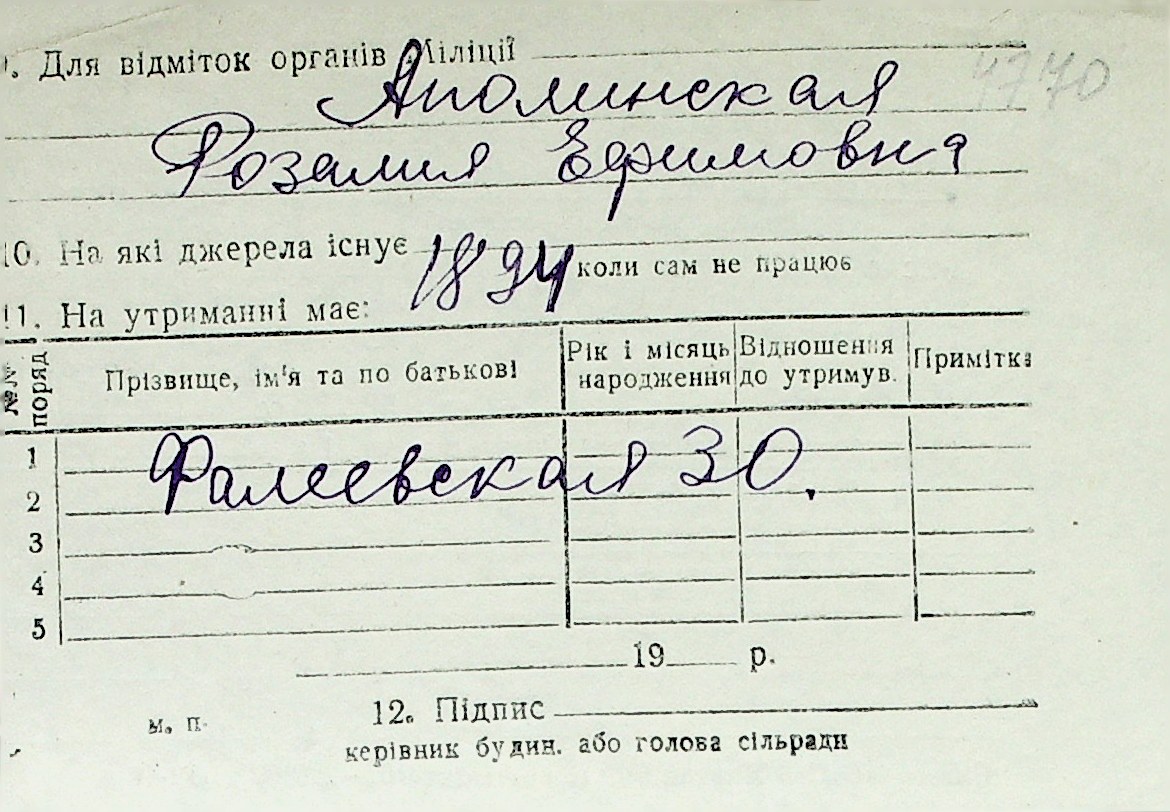 9. Для відміток органів Міліції
4770
Аполинская
Розалия Ефимовна
10. На які джерела існує
1894 коли сам не працює
11. На утриманні має:
№№ поряд
Прізвище, ім'я та по батькові
Рік і місяць народження
Відношення до утримув.
Примітка
1
Фалеевская 30.
2
3
4
5
19 р.
м. п.
12. Підпис
керівник будин. або голова сільради